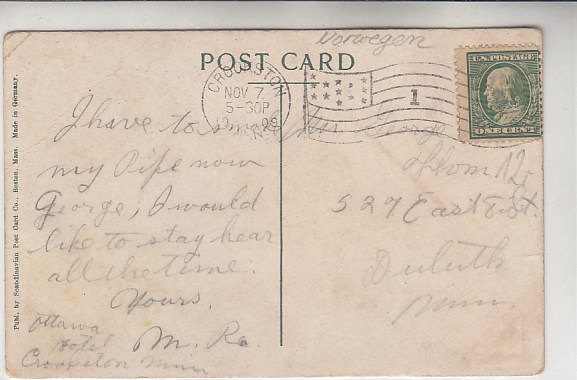 Norwegen
POST CARD
U.S. POSTAGE
ONE CENT
CROOKSTON
NOV 7
5-30P
1909
MINN.
1
I have to smoke
my Pipe now
George, I would
like to stay hear
all the time.
Yours,
M. Ro.
Ottawa
Hotel
Crookston Minn
Mr George
527 East 8 St.
Duluth
Minn
Publ. by Scandinavian Post Card Co., Boston, Mass. Made in Germany.